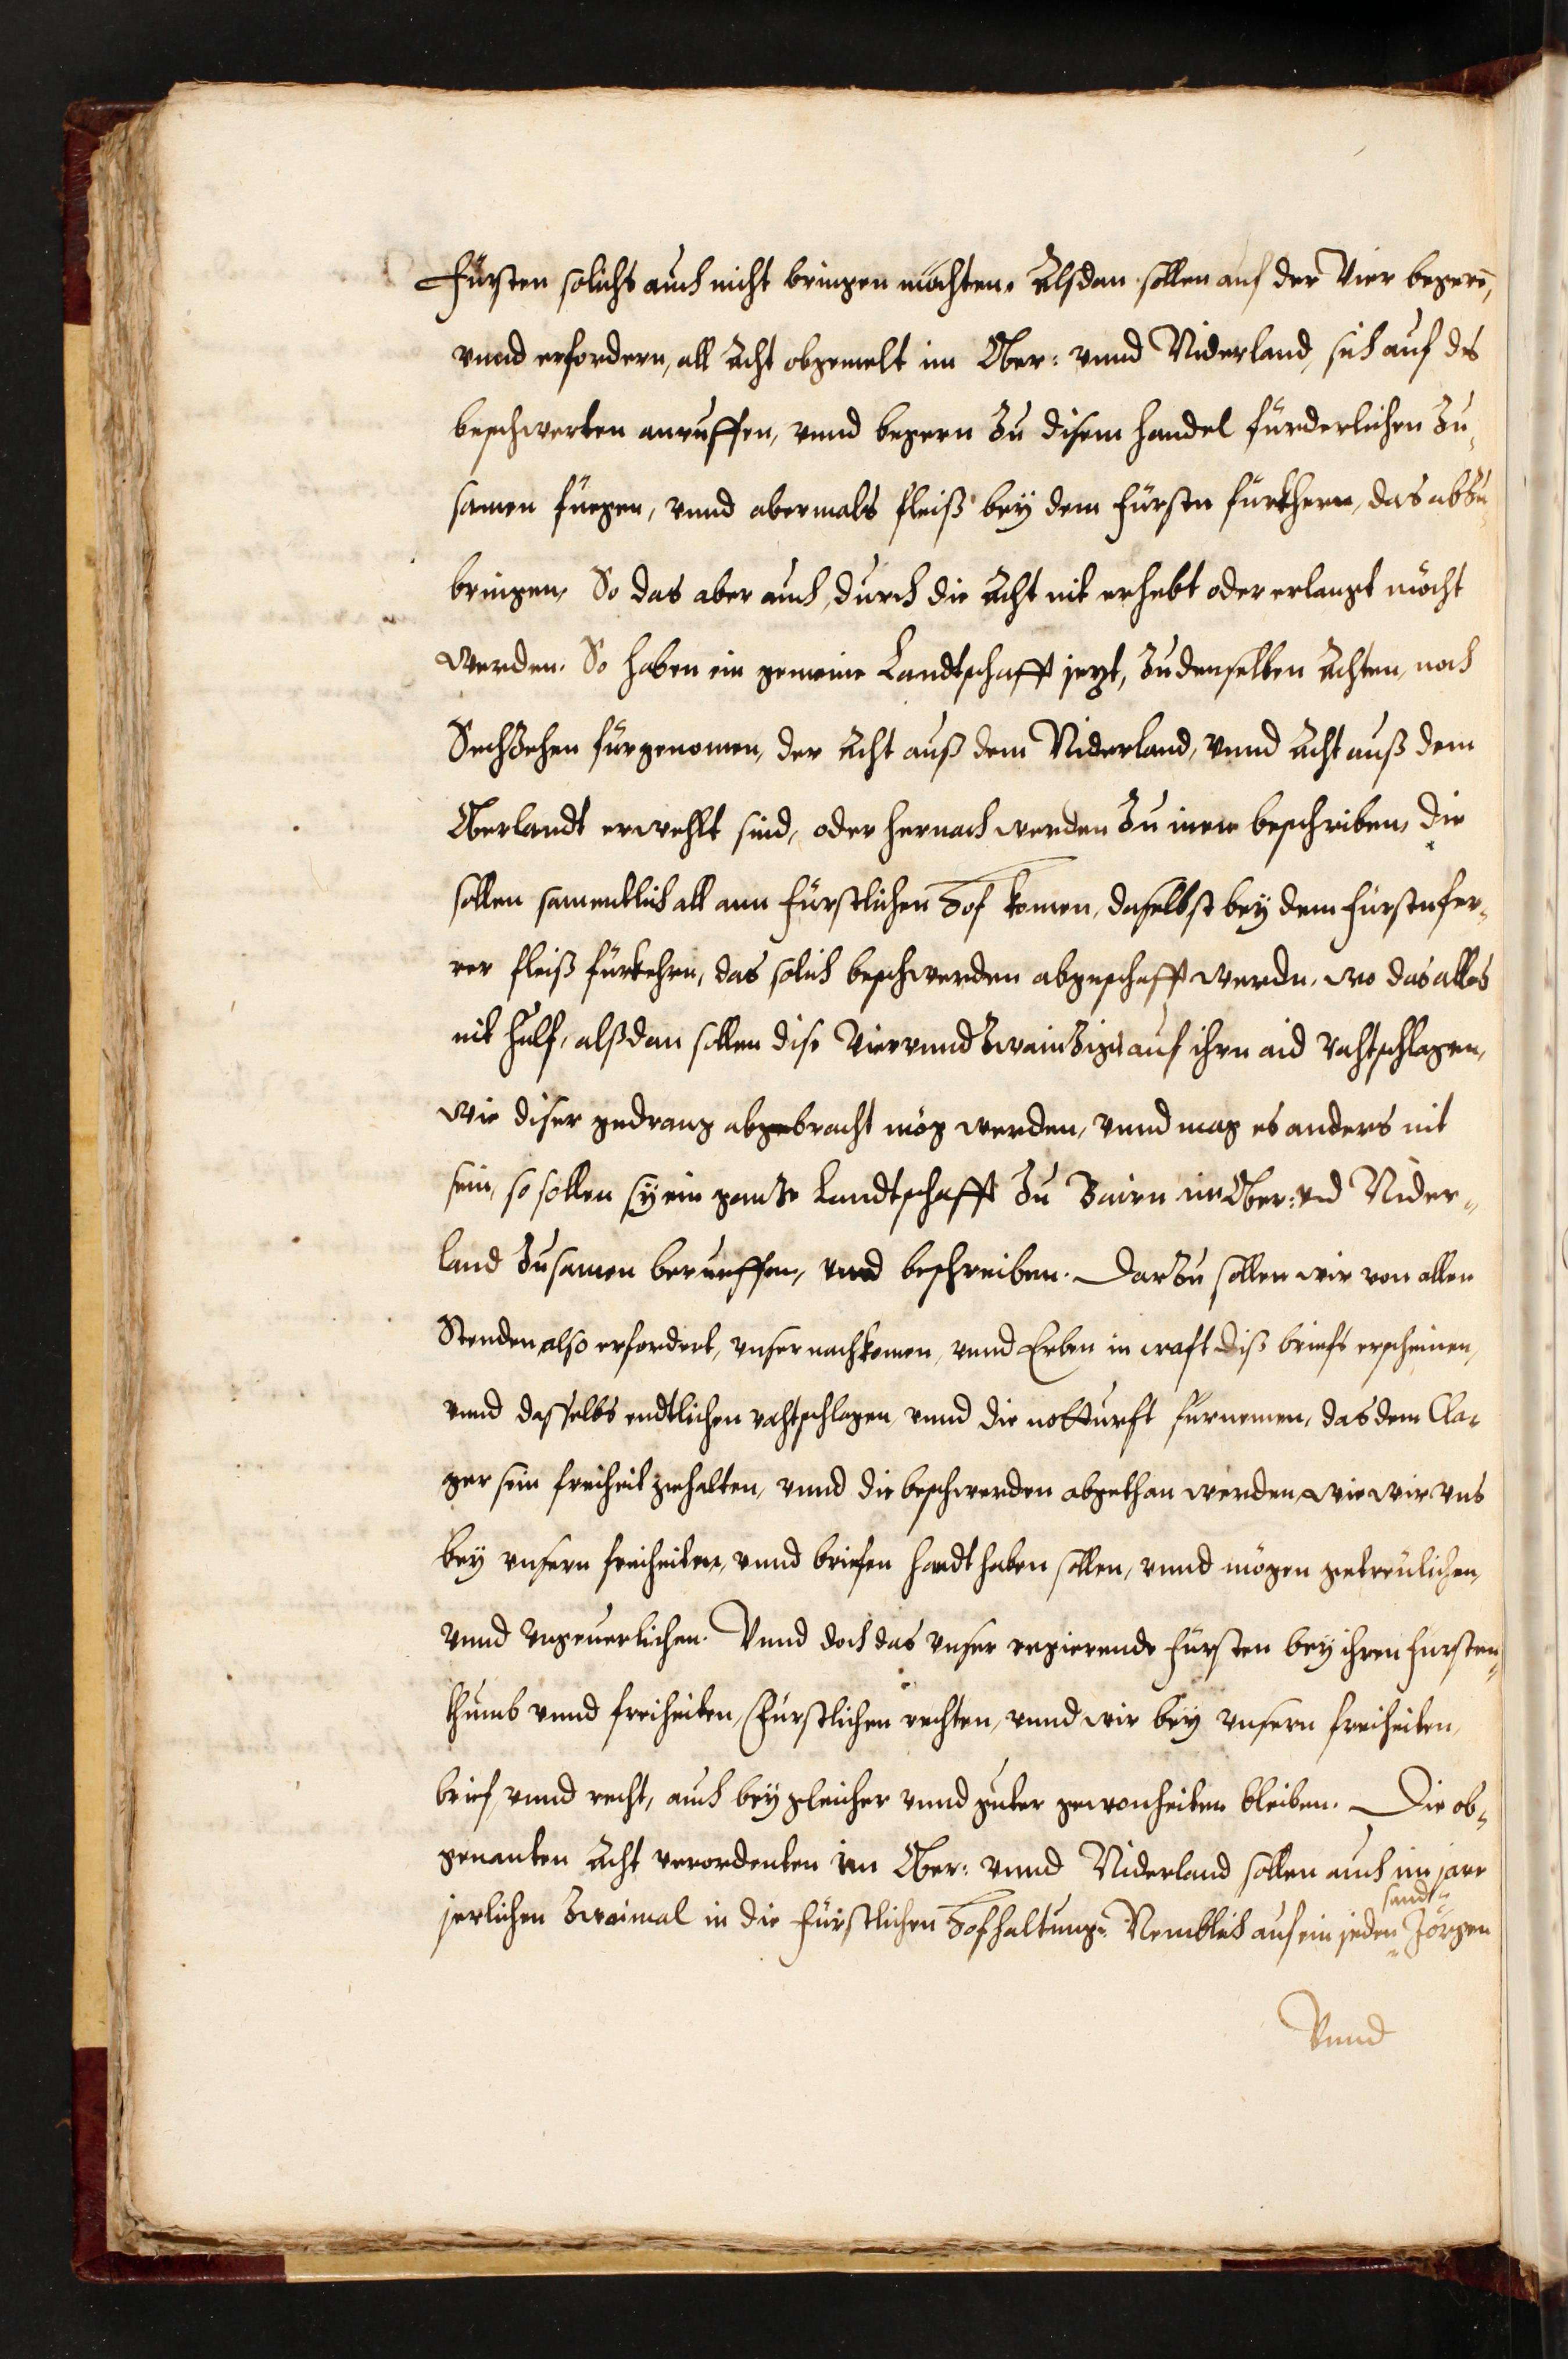 Fürsten solichs auch nicht bringen möchten. Alsdan sollen auf der Vier begern̄,
vnnd erfordern, all Acht obgemelt im Ober: vnnd Niderland, sich auf des
beschwerten anruffen, vnnd begern zu disem handel fürderlichen zu„
samen füegen, vnnd abermals fleiß bey dem Fürsten fürkhern, das abzu„
bringen. So das aber auch, durch die Acht nit erhebt oder erlangt möcht
werden. So haben ein gemeine Landtschafft jezt, zu denselben Achten, noch
Sechzehen fürgenomen, der Acht auß dem Niderland, vnnd Acht auß dem
Oberlandt erwehlt sind, oder hernach werden zu inen beschriben, die
sollen samentlich all ann Fürstlichen Hof komen, daselbst bey dem Fürsten fer„
rer fleiß fürkehrn, das solich beschwerden abgeschafft werdn, wo das alles
nit hulf, alßdan sollen dise Viervnndzwainzig auf ihrn aid rahtschlagen,
wie diser gedrang abgebracht mög werden, vnnd mag es anders nit
sein, so sollen sy ein ganze Landtschafft zu Bairn im Ober: vnd Nider„
land zusamen berueffen, vnnd beschreiben. Darzu sollen wir von allen
Stenden also erfordert, vnser nachkomen, vnnd Erben in craft diß briefs erscheinen,
vnnd dasselbs endtlichen rahtschlagen, vnnd die notturft fürnemen, das dem Cla„
ger sein freiheit gehalten, vnnd die beschwerden abgethan werden, wie wir vns
bey vnsern freiheiten, vnnd briefen handthaben sollen, vnnd mögen getreulichen,
vnnd vngeuerlichen. Vnnd doch das vnser regierende Fürsten bey ihren Fürsten„
thumb vnnd freiheiten, Fürstlichen rechten, vnnd wir bey vnsern freiheiten,
brief, vnnd recht, auch bey gleicher vnnd guter gewonheiten bleiben. Die ob„
genanten Acht verordenten im Ober: vnnd Niderland sollen auch im jare
jerlichen zwaimal in die Fürstlichen Hofhaltung. Nemblich auf ein jeden sandt Jörgen
Vnnd